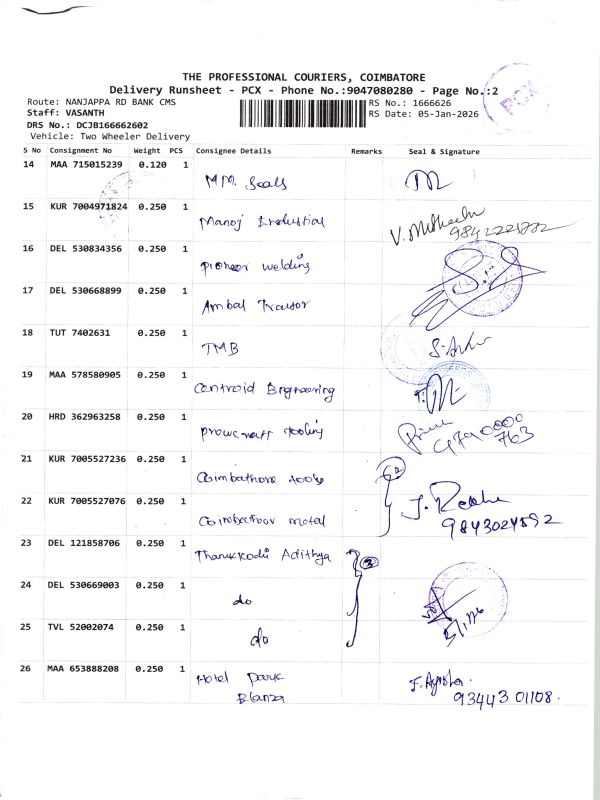 THE PROFESSIONAL COURIERS, COIMBATORE
Delivery Runsheet - PCX - Phone No.:9047080280 - Page No.:2
Route: NANJAPPA RD BANK CMS
RS No.: 1666626
Staff: VASANTH
RS Date: 05-Jan-2026
DRS No.: DCJB166662602
Vehicle: Two Wheeler Delivery
PCX
S No Consignment No Weight PCS Consignee Details Remarks Seal & Signature
14 MAA 715015239 0.120 1 M.M. Seals
15 KUR 7004971824 0.250 1 Manoj Industial
16 DEL 530834356 0.250 1 pioneer welding
17 DEL 530668899 0.250 1 Ambal
18 TUT 7402631 0.250 1 TMB
19 MAA 578580905 0.250 1 Centroid Engineering
20 HRD 362963258 0.250 1 tooling 9790000763
21 KUR 7005527236 0.250 1 Coimbathore tools 2
22 KUR 7005527076 0.250 1 Coimbathoor metal 9843024592
23 DEL 121858706 0.250 1 Thanukkodi Adithya 3
24 DEL 530669003 0.250 1 do
25 TVL 52002074 0.250 1 do
26 MAA 653888208 0.250 1 Hotel park
Blanza 93443 01108.